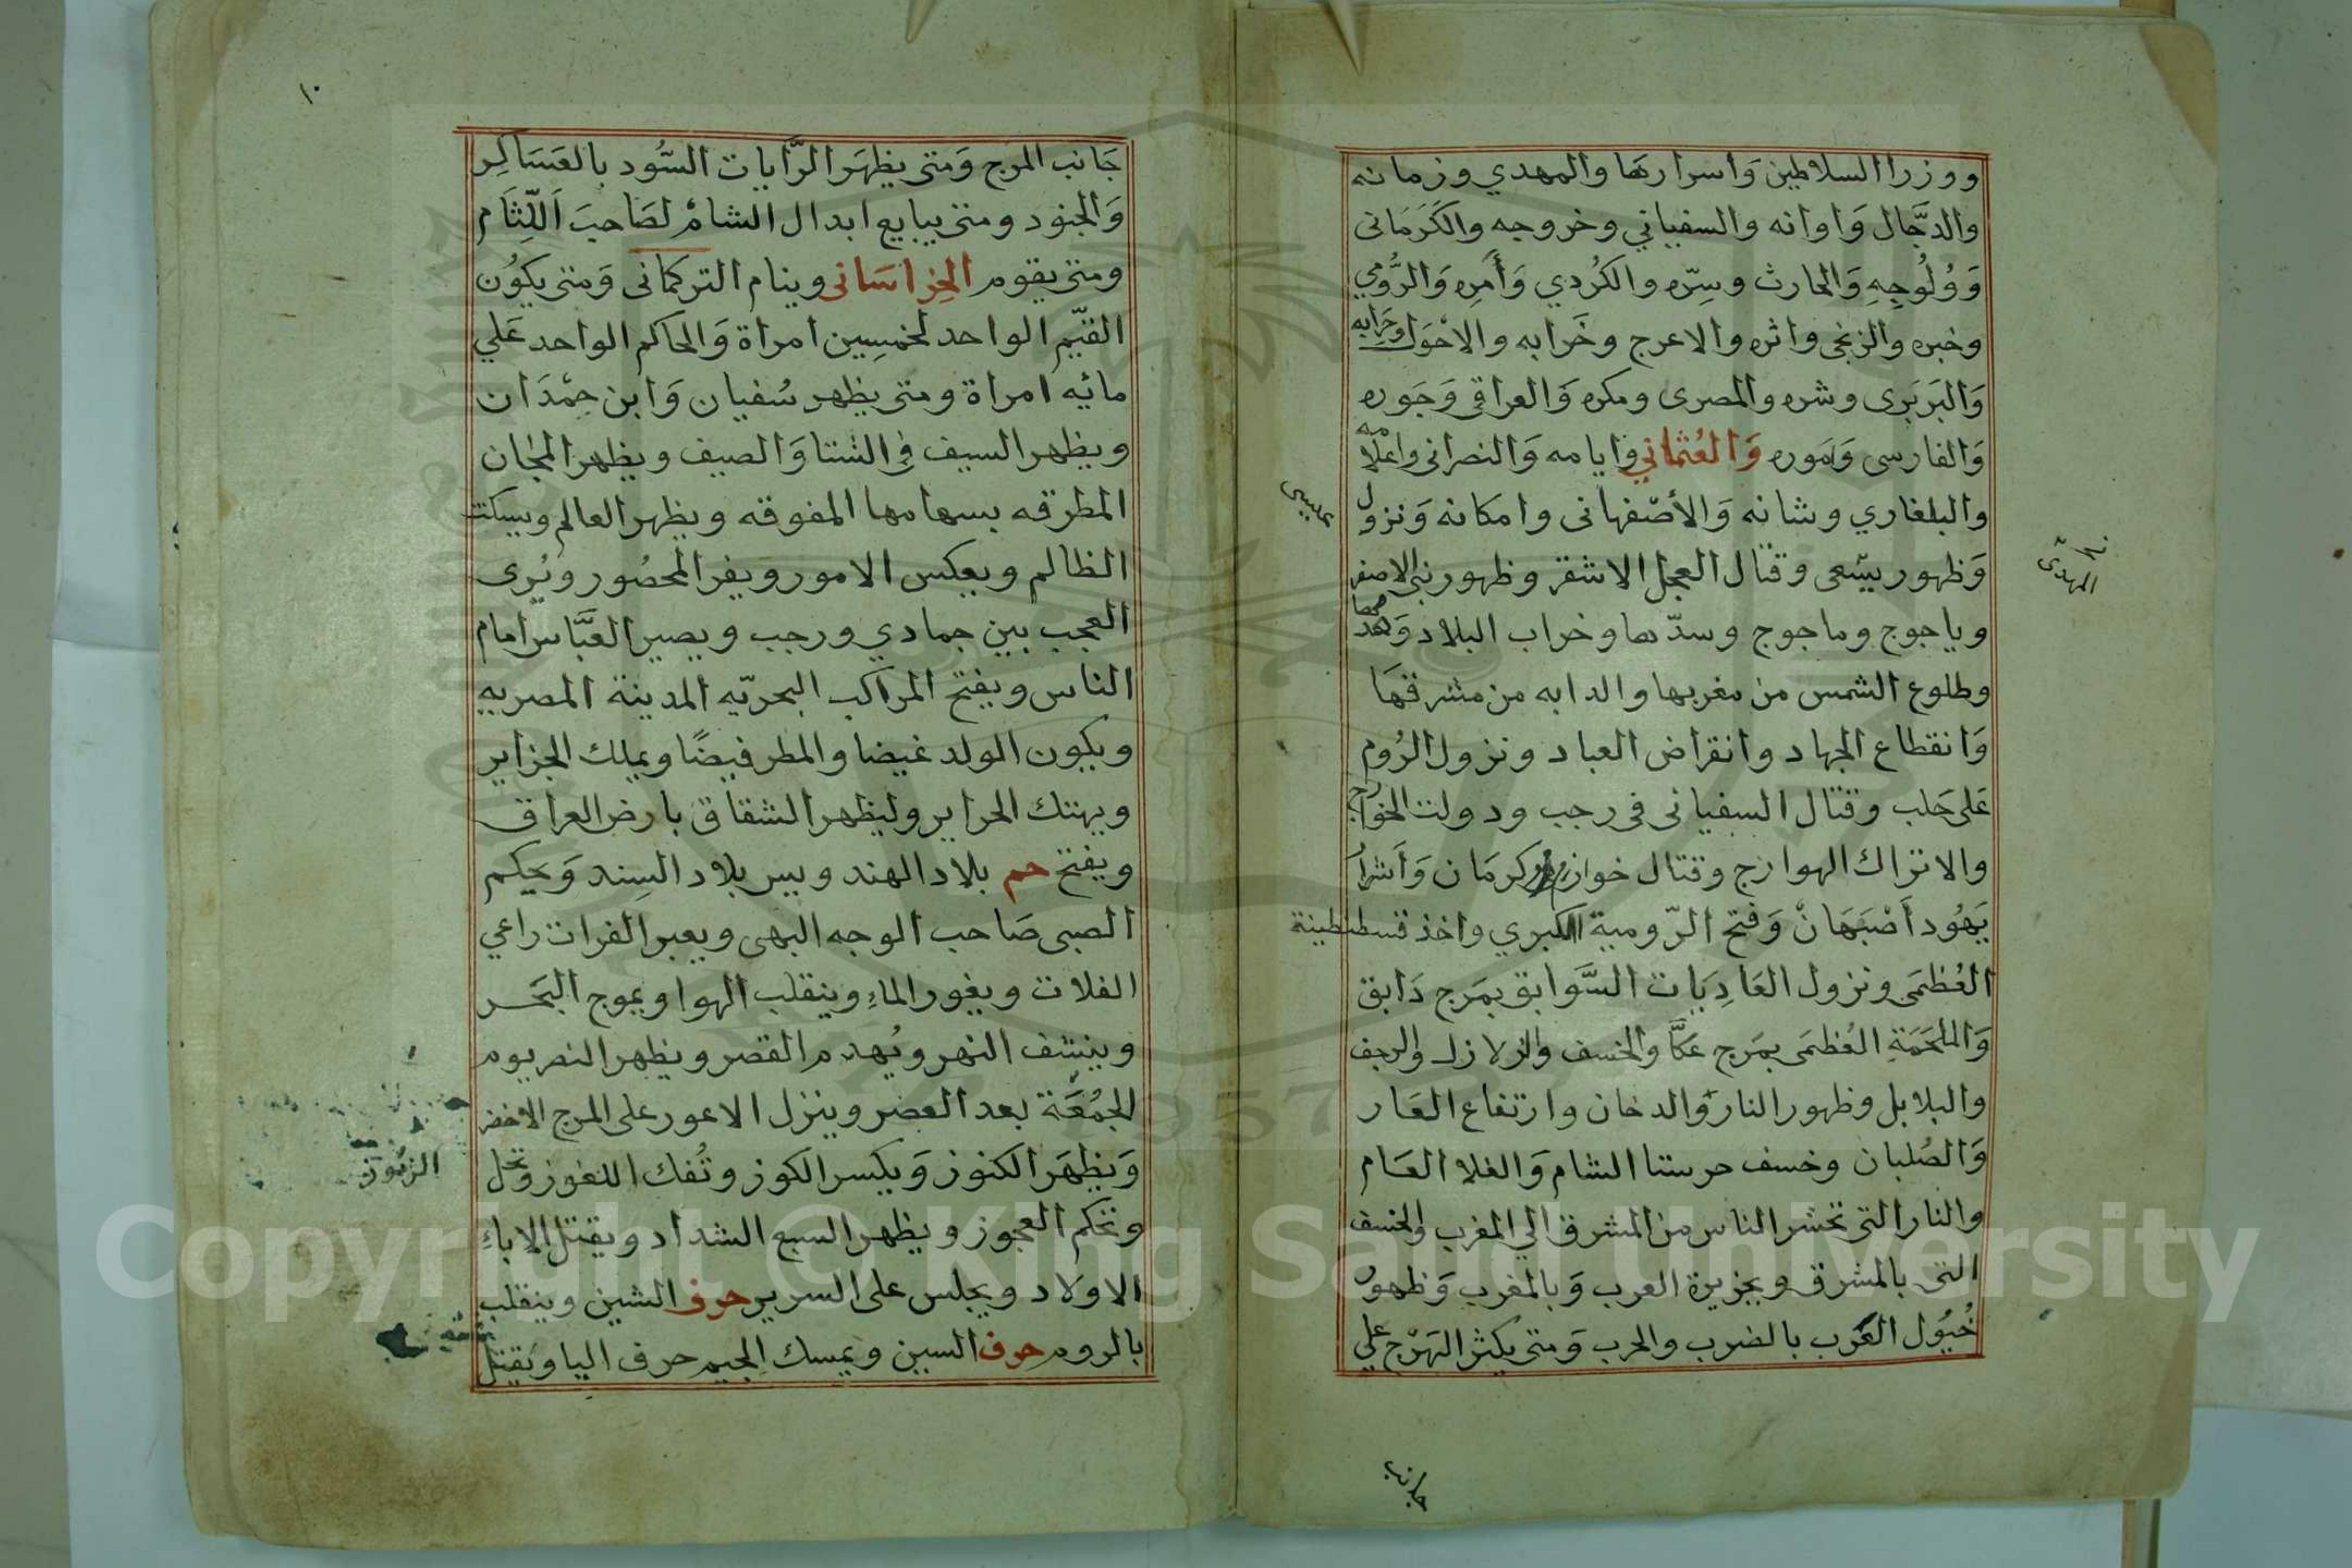 ووزرا السلاطين وَاسرارها والمهدي وزمانه
والدجَّال وَاوانه والسفياني وخروجه والكَرَمَانى
وَوُلُوجِهِ وَالحارث وسِرّه والكُردي وَأَمره وَالرُّومي
وخبره والزنجى واثره والاعرج وخَرابه والاحْوَل وجَرابه
وَالبَربَرى وشره والمصرى ومكره وَالعراقى وَجَوره
وَالفارسى وَاموره وَالعُثماني وَايامه وَالنصرانى واعلامه
والبلغاري وشانه وَالأصْفهانى وامكانه وَنزول عيسى
وَظهور يسْعى وقتال العجل الاشقر وظهور بنى الاصفر
وياجوج وماجوج وسدّها وخراب البلاد وَهدها
وطلوع الشمس من مغربها والدابه من مشرقهَا
وَانقطاع الجهاد وانقراض العباد ونزول الرُوم
عَلى حَلب وقتال السفيانى فى رجب ودولت الخوارج
والاتراك الهوازج وقتال خوازم وكرمَان وَأشرار
يَهُود أصْبَهَانْ وَفتح الرّومية الكبري واخذ قسطنطينة
العُظمَى ونزول العَادِيَات السَّوابق بمَرج دَابق
وَالملحَمَةِ العُظمَى بمَرج عَكَّا والخسف والزلازل والرجف
والبلابل وظهور النار والدخان وارتفاع العَار
وَالصُلبان وخسف حرستا الشام وَالغلا العَام
والنار التى تحشر الناس من المشرق الي المغرب والخسف
التى بالمشرق وبجزيرة العرب وَبالمغرب وَظهور
خُيُول العَرب بالضرب والحرب وَمتى يكثر الهَرْج علي
المهدى
جانب
١٠
جَانب المرج وَمتى يظهَر الرَّايات السُّود بالعَسَاكِر
وَالجنود ومتى يبايع ابدال الشامْ لصَاحبَ اَللِّثَام
ومتى يقوم الخِراسَانى وينام التركمانى وَمتى يكوُن
القيّم الواحد لخمسِين امراة وَالحاكم الواحد عَلي
مائيه امراة ومتى يظهر سُفيان وَابن حمْدَان
ويظهر السيف فى الشتا وَالصيف ويظهر المجان
المطرقه بسهامها المفوقه ويظهر العالم ويسكت
الظالم ويعكس الامور ويفر المحصُور ويُرى
العجب بين جمادي ورجب ويصير العبَّاس امام
الناس ويفتح المراكب البحريّه المدينة المصريه
ويكون الولد غيضا والمطر فيضًا ويملك الجزاير
ويهتك الحراير وليظهر الشقاق بارض العراق
ويفتح حم بلاد الهند وبيبر بلاد السِند وَيحكم
الصبى صَاحب الوجه البهى ويعبر الفرات راعي
الفلات ويغور الماءِ وينقلب الهوا ويموج البَحر
وينشف النهر ويُهدم القصر ويظهر النصر يوم
الجمُعَة بعد العصر وينزل الاعور على المرج الاخضر
وَيظهَر الكنوز وَيكسر الكوز وتُفك اللغوز وتحل
الرموز
وتحكم العجوز ويظهر السبع الشداد ويقتل الاباءِ
الاولاد ويجلس على السرير حرف الشين وينقلب
بالروم حرف السين ويمسك الجيم حرف اليا ويقتل
Copyright © King Saud University